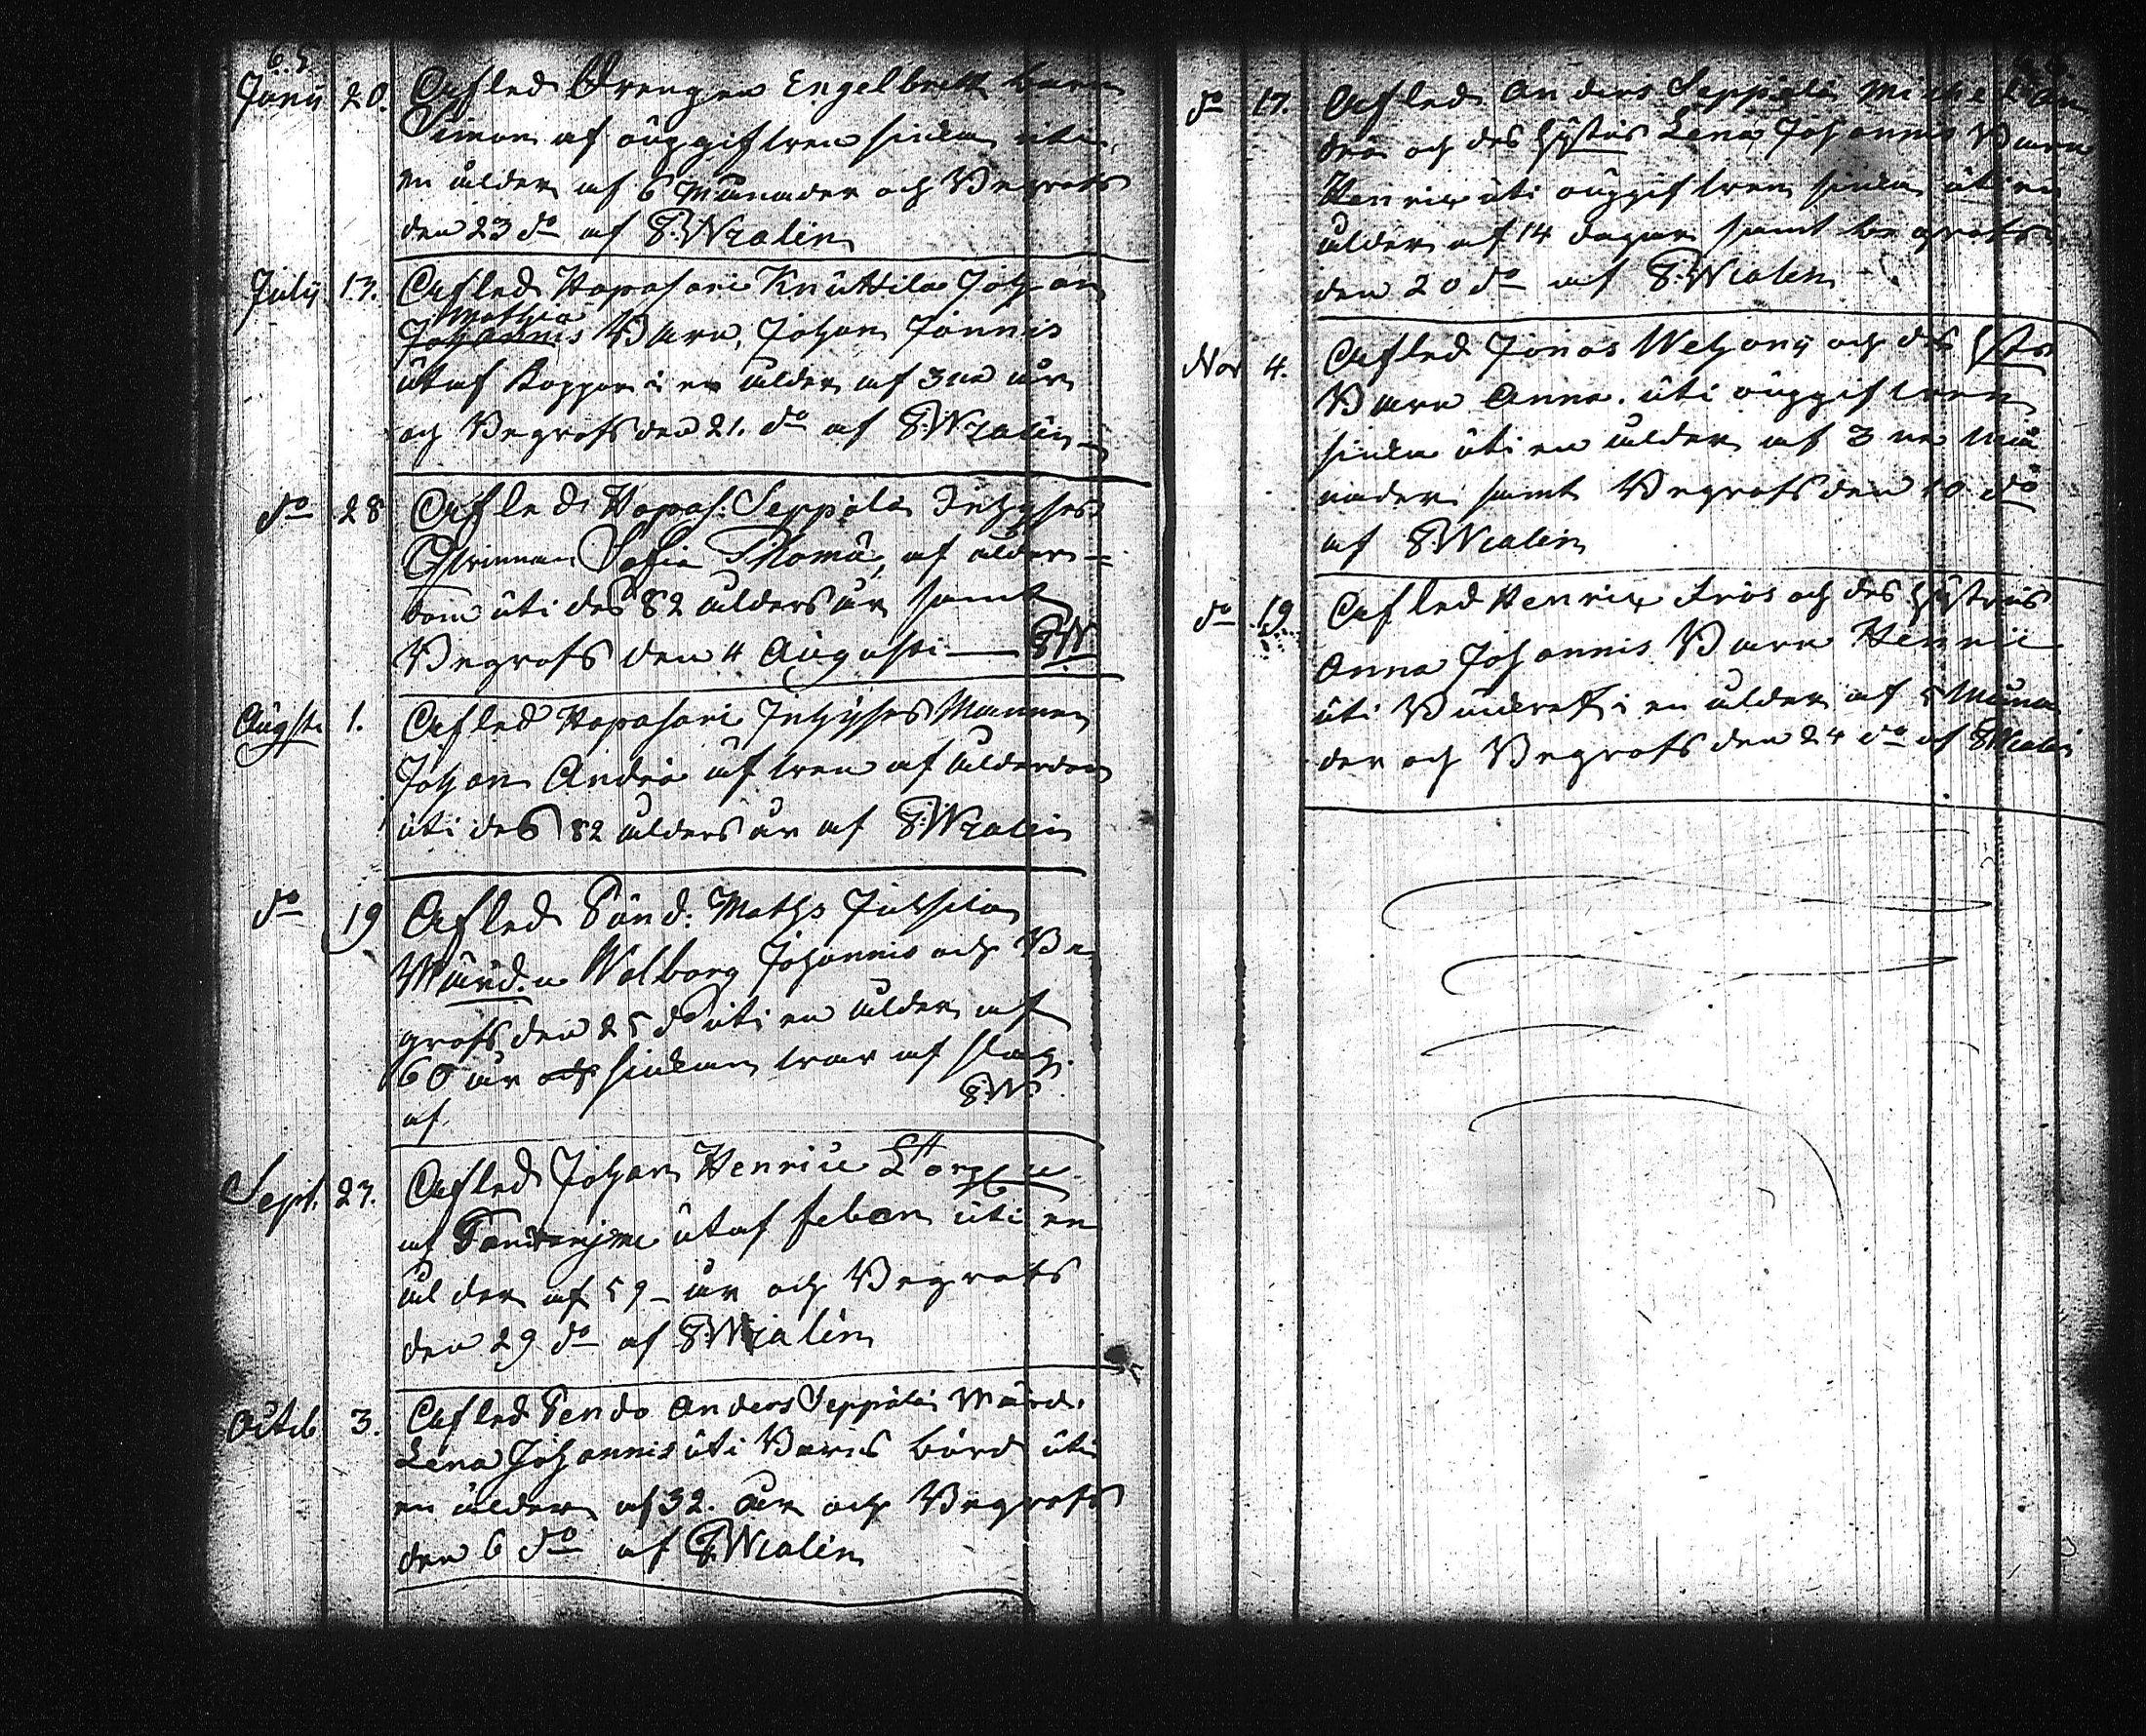 65
Junij 20. Afled Drengen Engelbrett barn
Simon af oupgifwen siuka uti
en ålder af 6 Månader och Begrofs
den 23 do af P. Wialin
Julij 13. Afled Hapasari Knuttila Johan
Mathiæ
Johannis Barn, Johan Jonnis
utaf Koppor i en ålder af 3ne år
och Begrofs den 21. do af P. Wialin
do 28 Afled Hapas. Seppälä Inhyses
Qwinnan Sofia Thomæ, af ålder=
dom uti des 82 ålders år samt
Begrofs den 4 Augusti — PW
Augsti 1. Afled Hapasari Inhyses Mannen
Johan Andræ af ålderdom
uti des 82 ålders år af P. Wialin
do 19 Afled Mats
Wärd.a Walborg Johannis och Be
grofs den 25 do uti en ålder af
60 år och siukan war af slag.
af P.W.
Sept. 27. Afled Johan Henric
af utaf feber uti en
ålder af 59 år och Begrofs
den 29 do af P. Wialin
Octob 3. Afled Anders Seppälä Wärd.
Lena Johannis uti Barns börd uti
en ålder af 32. år och Begrofs
den 6 do af P. Wialin
do 17. Afled Anders Seppälä Michel An
dræ och des Hustrus Lena Johannis Barn
Henric uti oupgifwen siuka uti en
ålder af 14 dagar samt begrofs
den 20 do af P. Wialin
Nov 4. Afled Jonas Wehonij och des Hstr
Barn Anna. uti oupgifwen
siuka uti en ålder af 3ne Må
nader samt Begrofs den 10 do
af P. Wialin
do 19 Afled Henric Frös och des Hustrus
Anna Johannis Barn Henric
uti i en ålder af 5 Måna
der och Begrofs den 24 do af P Wialin